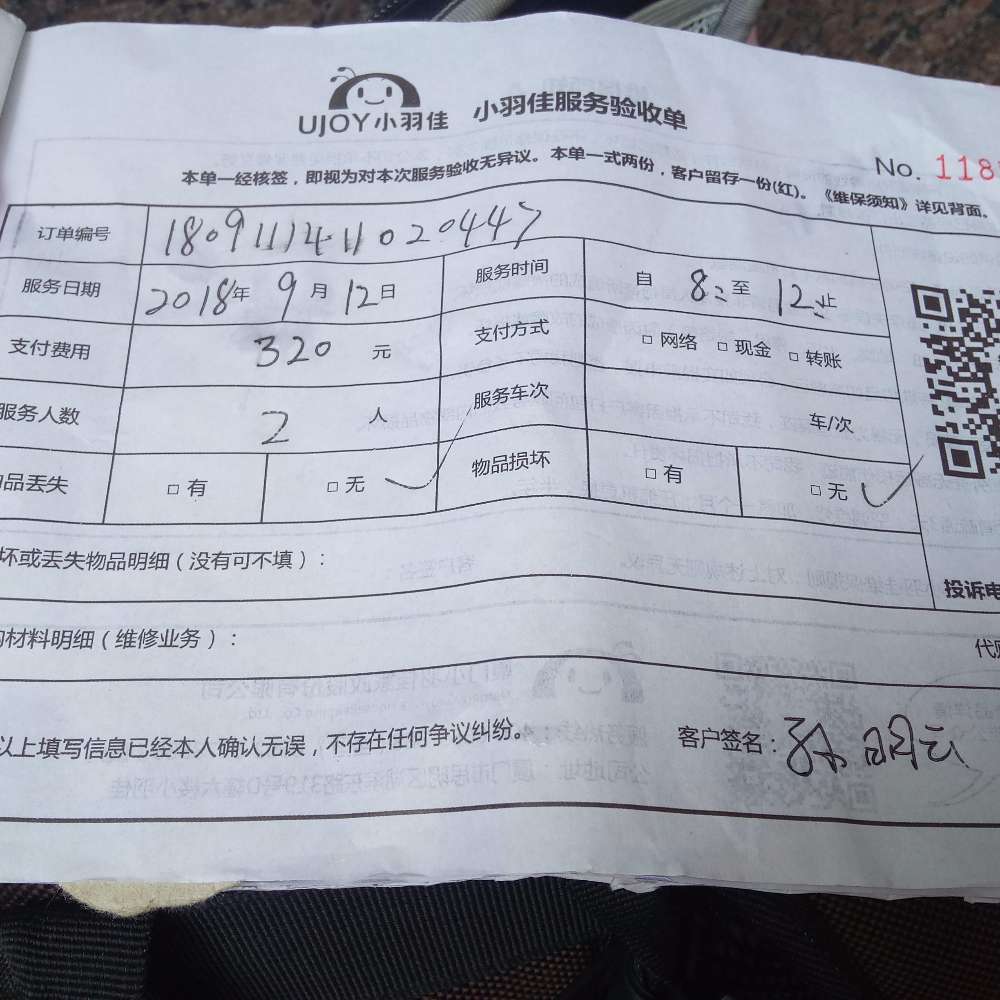 UJOY小羽佳 小羽佳服务验收单
No. 118
本单一经核签，即视为对本次服务验收无异议。本单一式两份，客户留存一份(红)。《维保须知》详见背面。
订单编号 180911141102044
服务日期 2018年 9月 12日 服务时间 自 8: 至 12: 止
支付费用 320 元 支付方式 □ 网络 □ 现金 □ 转账
服务人数 2 人 服务车次 车/次
品丢失 □ 有 □ 无 ✓ 物品损坏 □ 有 □ 无 ✓
坏或丢失物品明细（没有可不填）：
投诉电
材料明细（维修业务）：
代购
以上填写信息已经本人确认无误，不存在任何争议纠纷。 客户签名：孙明云